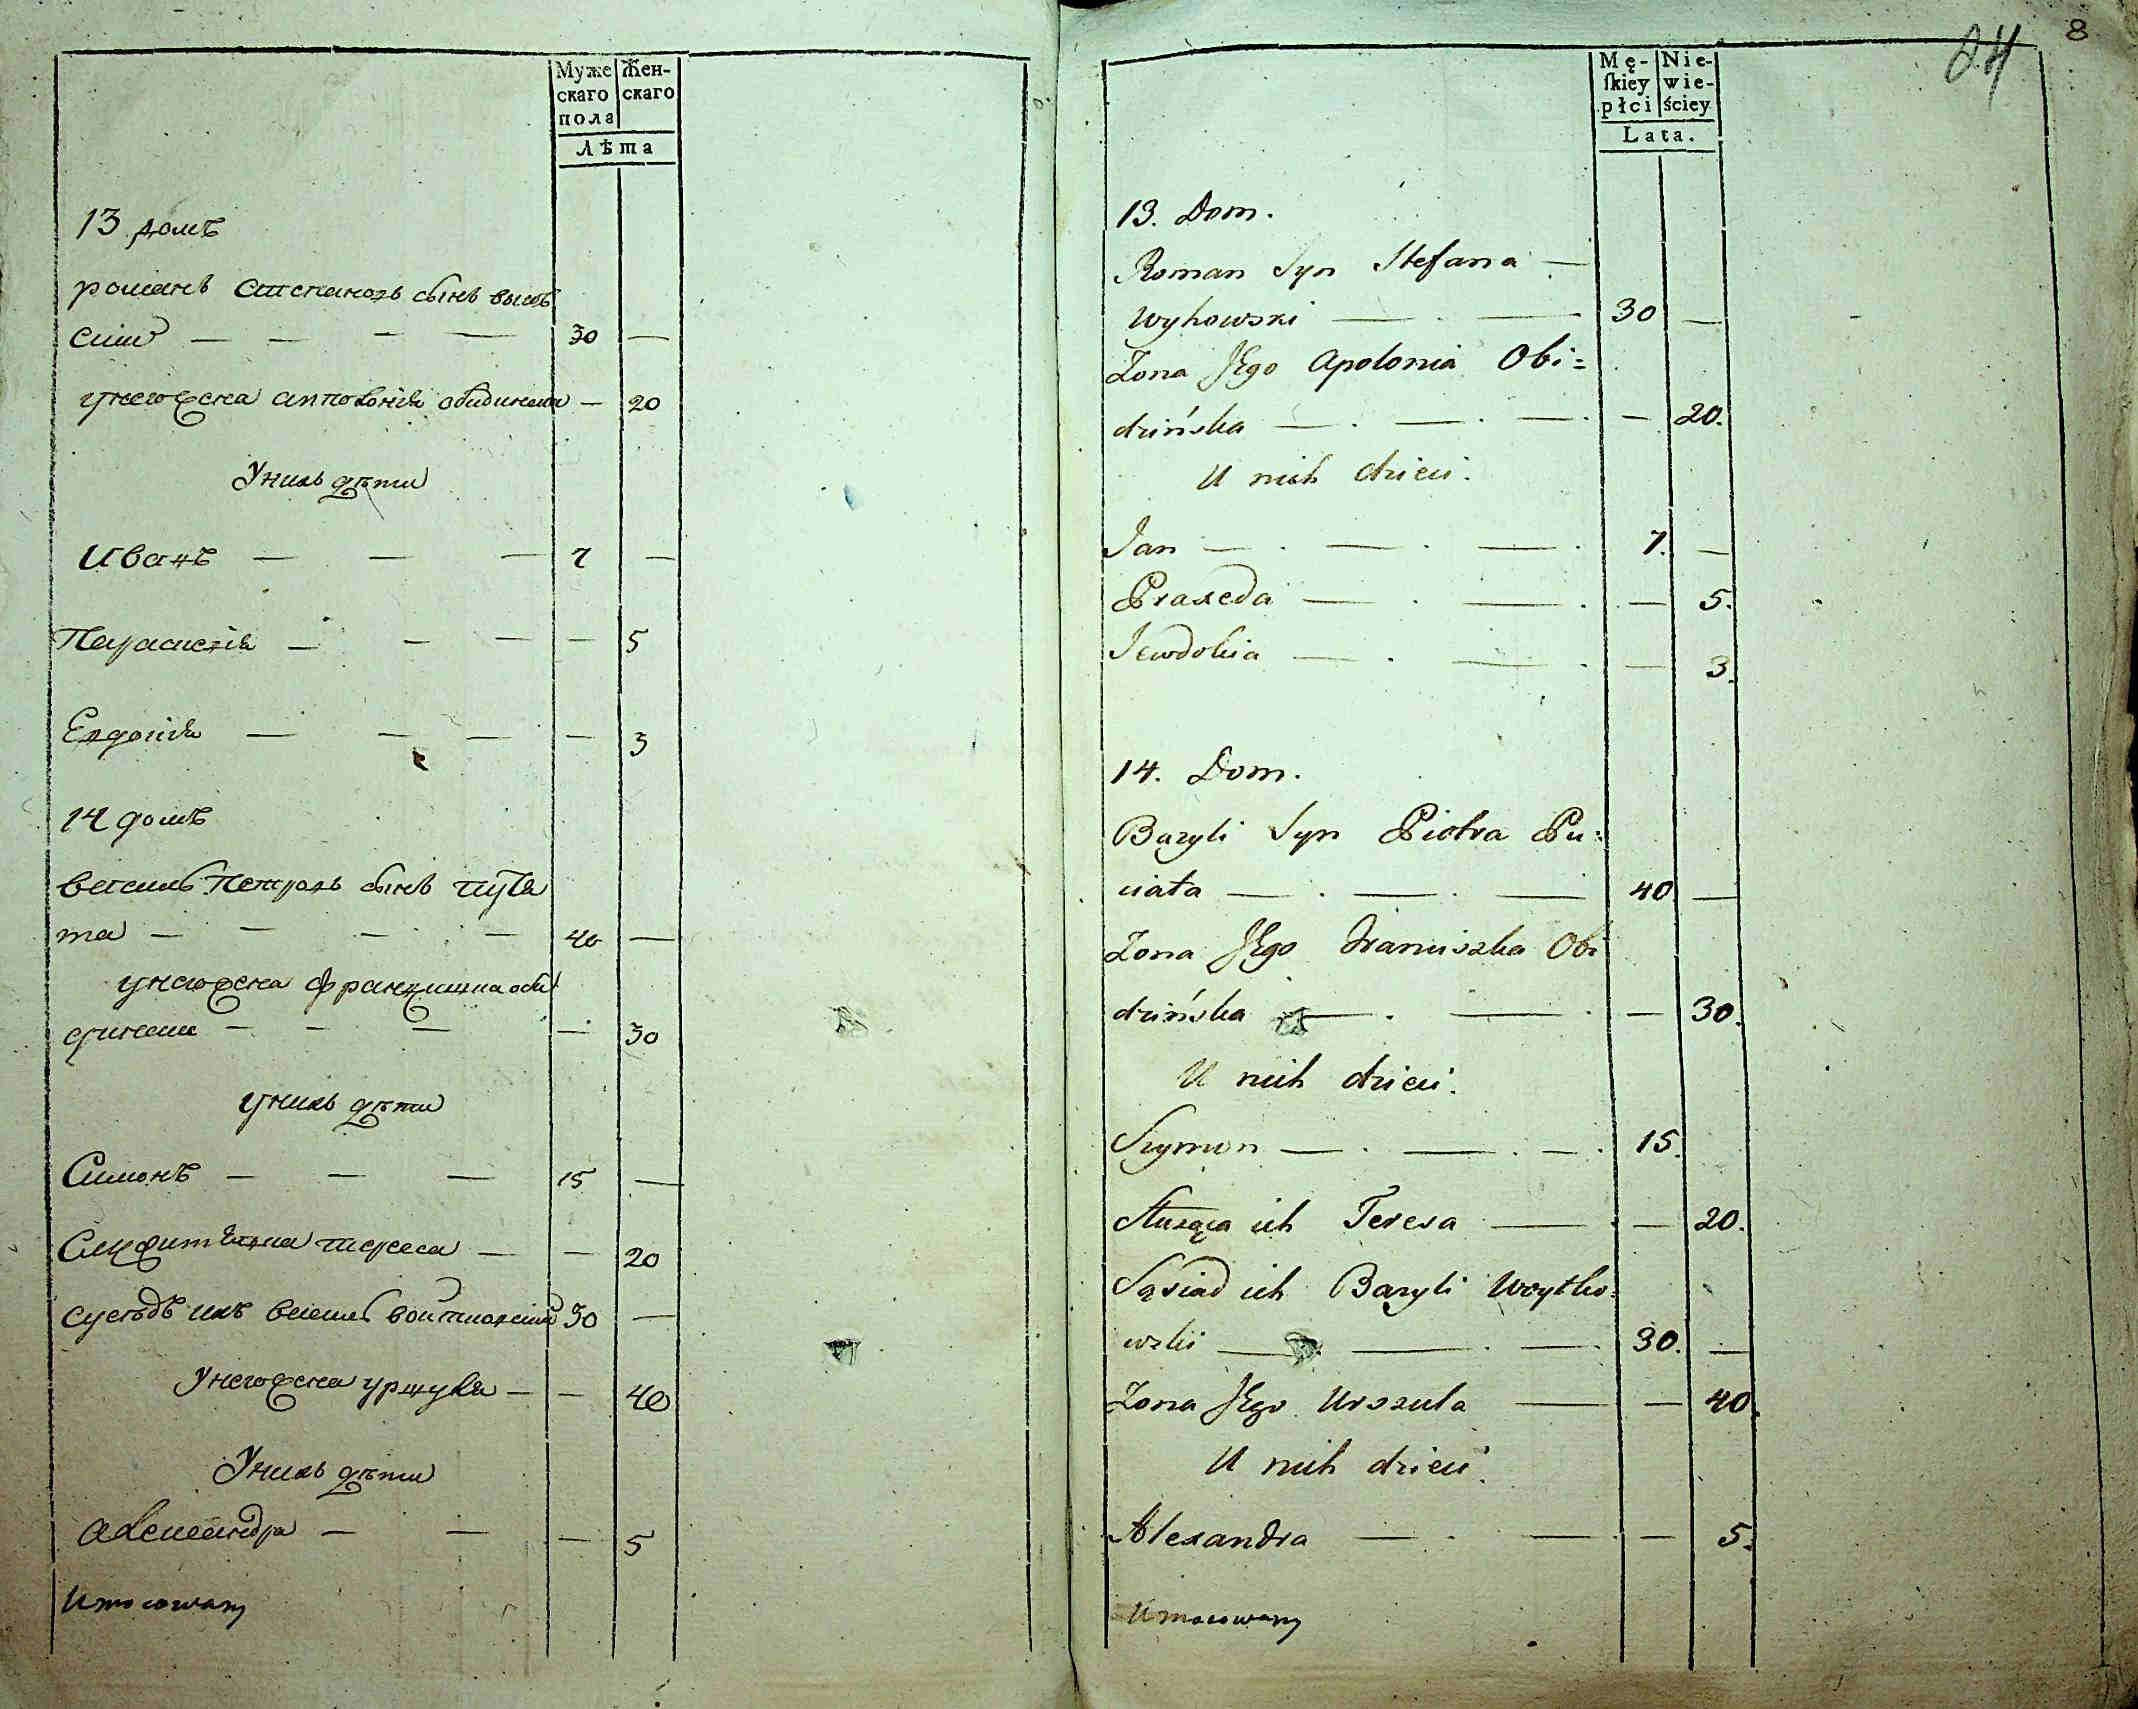 Муже
скаго
пола
Жен-
скаго
Лѣта
13 домъ
романъ степановъ сынъ выгов
ски — — — — 30 —
унегожена апполонія обидинска — 20
Унихъ дѣти
Иванъ — — — 7 —
Параскевія — — — — 5
Евдокія — — — — 3
14 домъ
василь петровъ сынъ путя
та — — — — 40 —
унегожена францишка оби
динска — — — — 30
унихъ дѣти
Симонъ — — — 15 —
Тереса — — 20
сусѣдъ ихъ василь войтковскій 30 —
Унегожена уршуля — — 40
Унихъ дѣти
александра — — — 5
Umocowany
8
24
Mę-
ſkiey
płci
Nie-
wie-
ściey
Lata.
13. Dom.
Roman Syn Stefana —
Wyhowski — . — 30 —
Żona JEgo Apolonia Obi=
dzińska — . — . — . — 20.
U nich dzieci.
Jan — . — . — . 7. —
Praxeda — . — . — 5.
Jewdokia — . — . — 3.
14. Dom.
Bazyli Syn Piotra Pu=
ciata — . — . — 40 —
Żona JEgo Franciszka Obi
dzińska — . — . — 30.
U nich dzieci.
Szymon — . — . — . 15.
Służąca ich Teresa — . — 20.
Sąsiad ich Bazyli Woytko=
wski — . — . — 30. —
Żona JEgo Urszula — — 40.
U nich dzieci.
Alexandra — . — . — 5.
Umocowany